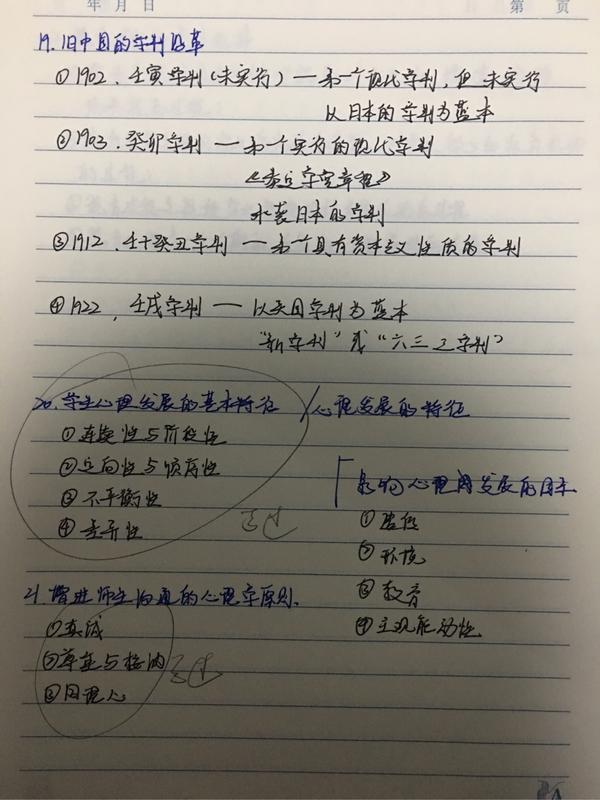 年 月 日
第 页
19. 旧中国的学制沿革
①1902. 壬寅学制(未实行) — 第一个现代学制, 但未实行
以日本的学制为蓝本
②1903. 癸卯学制 — 第一个实行的现代学制
《奏定学堂章程》
承袭日本的学制
③1912. 壬子癸丑学制 — 第一个具有资本主义性质的学制
④1922, 壬戌学制 — 以美国学制为蓝本
"新学制"或"六三三学制"
20. 学生心理发展的基本特征 / 心理发展的特征
①连续性与阶段性
②定向性与顺序性
③不平衡性
④差异性
影响心理发展的因素
①遗传
②环境
③教育
④主观能动性
21. 增进师生沟通的心理学原则.
①真诚
②尊重与接纳
③同理心